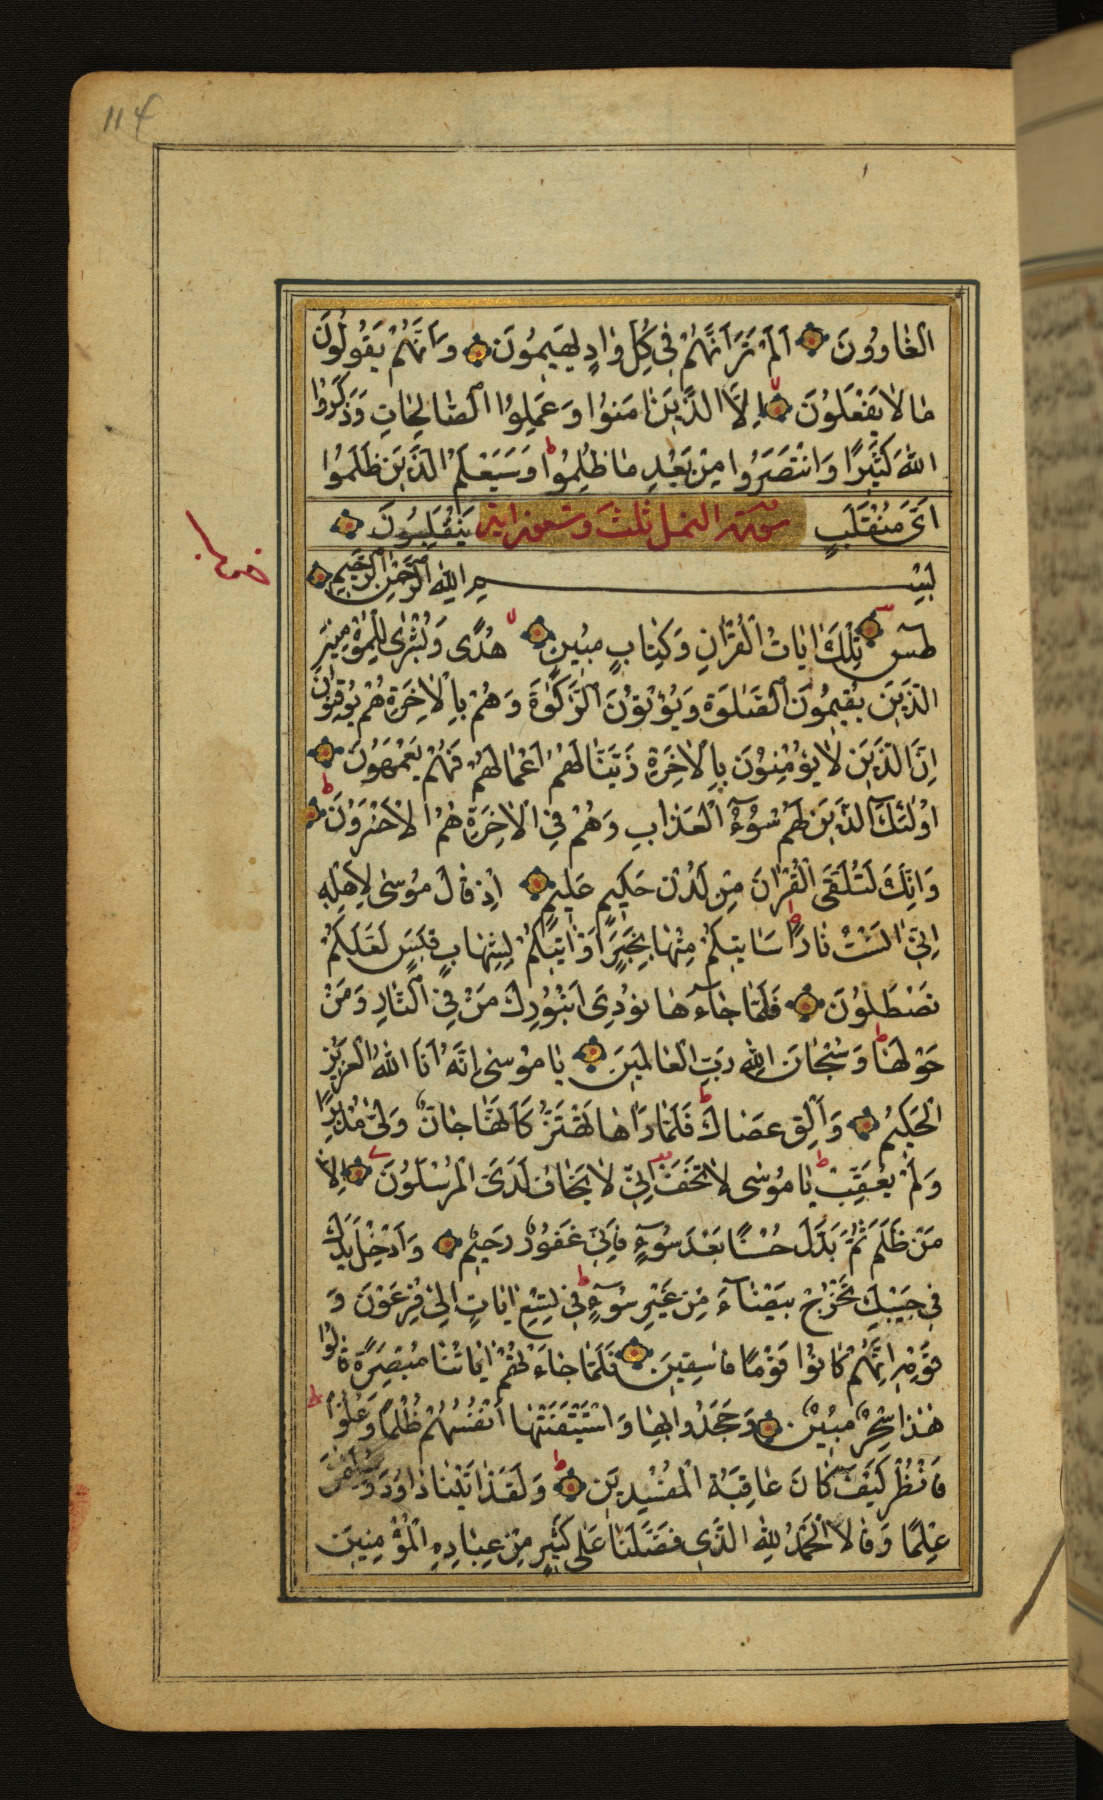 114
الْغَاوُونَ اَلَمْ تَرَ اَنَّهُمْ فِي كُلِّ وَادٍ يَهِيمُونَ وَاَنَّهُمْ يَقُولُونَ
مَا لَا يَفْعَلُونَ اِلَّا الَّذِينَ اٰمَنُوا وَعَمِلُوا الصَّالِحَاتِ وَذَكَرُوا
اللّٰهَ كَثِيرًا وَانْتَصَرُوا مِنْ بَعْدِ مَا ظُلِمُوا وَسَيَعْلَمُ الَّذِينَ ظَلَمُوا
اَيَّ مُنْقَلَبٍ سورة النمل ثلث وتسعون اية يَنْقَلِبُونَ
بِسْمِ اللّٰهِ الرَّحْمٰنِ الرَّحِيمِ
طٰسٓ تِلْكَ اٰيَاتُ الْقُرْاٰنِ وَكِتَابٍ مُبِينٍ هُدًى وَبُشْرٰى لِلْمُؤْمِنِينَ
الَّذِينَ يُقِيمُونَ الصَّلٰوةَ وَيُؤْتُونَ الزَّكٰوةَ وَهُمْ بِالْاٰخِرَةِ هُمْ يُوقِنُونَ
اِنَّ الَّذِينَ لَا يُؤْمِنُونَ بِالْاٰخِرَةِ زَيَّنَّا لَهُمْ اَعْمَالَهُمْ فَهُمْ يَعْمَهُونَ
اُولٰئِكَ الَّذِينَ لَهُمْ سُوٓءُ الْعَذَابِ وَهُمْ فِي الْاٰخِرَةِ هُمُ الْاَخْسَرُونَ
وَاِنَّكَ لَتُلَقَّى الْقُرْاٰنَ مِنْ لَدُنْ حَكِيمٍ عَلِيمٍ اِذْ قَالَ مُوسٰى لِاَهْلِهِ
اِنِّي اٰنَسْتُ نَارًا سَاٰتِيكُمْ مِنْهَا بِخَبَرٍ اَوْ اٰتِيكُمْ بِشِهَابٍ قَبَسٍ لَعَلَّكُمْ
تَصْطَلُونَ فَلَمَّا جَآءَهَا نُودِيَ اَنْ بُورِكَ مَنْ فِي النَّارِ وَمَنْ
حَوْلَهَا وَسُبْحَانَ اللّٰهِ رَبِّ الْعَالَمِينَ يَا مُوسٰى اِنَّهُ اَنَا اللّٰهُ الْعَزِيزُ
الْحَكِيمُ وَاَلْقِ عَصَاكَ فَلَمَّا رَاٰهَا تَهْتَزُّ كَاَنَّهَا جَانٌّ وَلّٰى مُدْبِرًا
وَلَمْ يُعَقِّبْ يَا مُوسٰى لَا تَخَفْ اِنِّي لَا يَخَافُ لَدَيَّ الْمُرْسَلُونَ اِلَّا
مَنْ ظَلَمَ ثُمَّ بَدَّلَ حُسْنًا بَعْدَ سُوٓءٍ فَاِنِّي غَفُورٌ رَحِيمٌ وَاَدْخِلْ يَدَكَ
فِي جَيْبِكَ تَخْرُجْ بَيْضَآءَ مِنْ غَيْرِ سُوٓءٍ فِي تِسْعِ اٰيَاتٍ اِلٰى فِرْعَوْنَ وَ
قَوْمِهِ اِنَّهُمْ كَانُوا قَوْمًا فَاسِقِينَ فَلَمَّا جَآءَتْهُمْ اٰيَاتُنَا مُبْصِرَةً قَالُوا
هٰذَا سِحْرٌ مُبِينٌ وَجَحَدُوا بِهَا وَاسْتَيْقَنَتْهَا اَنْفُسُهُمْ ظُلْمًا وَعُلُوًّا
فَانْظُرْ كَيْفَ كَانَ عَاقِبَةُ الْمُفْسِدِينَ وَلَقَدْ اٰتَيْنَا دَاوُدَ وَسُلَيْمٰنَ
عِلْمًا وَقَالَا الْحَمْدُ لِلّٰهِ الَّذِي فَضَّلَنَا عَلٰى كَثِيرٍ مِنْ عِبَادِهِ الْمُؤْمِنِينَ